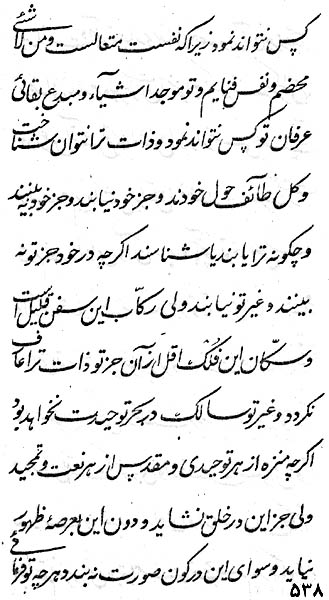 کس نتواند نمود زیرا که نفست متعالست و من لاشئی
محضم و نفس فنایم و تو موجد اشیاء و مبدع بقائی
عرفان تو کس نتواند نمود و ذات ترا نتوان شناخت
و کل طائف حول خودند و جز خود نیابند و جز خود نبینند
و چگونه ترا یابند یا شناسند اگرچه در خود جز تو نه
بینند و غیر تو نیابند ولی رکاب این سفن قلیل است
و سکان این فلک اقل از آن جز تو ذات ترا عارف
نگردد و غیر تو سالک در بحر توحیدت نخواهد بود
اگرچه منزه از هر توحیدی و مقدس از هر نعت و تمجید
ولی جز این در خلق نشاید و دون این بعرصهٔ ظهور
نیاید و سوای این در کون صورت نه بندد هر چه تو فرمائی
۵۳۸